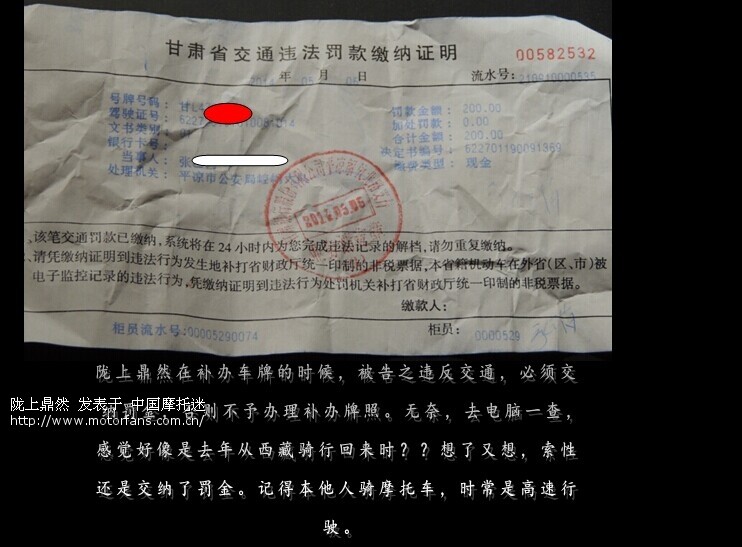 甘肃省交通违法罚款缴纳证明
00582532
年 月 日
流水号:
号牌号码： 甘L
驾驶证号：
文书类别：
银行卡号：
当事人： 张
处理机关： 平凉市公安局崆峒
罚款金额： 200.00
加处罚款： 0.00
合计金额： 200.00
决定书编号： 622701190091369
缴费类型： 现金
该笔交通罚款已缴纳，系统将在24小时内为您完成违法记录的解档，请勿重复缴纳。
请凭缴纳证明到违法行为发生地补打省财政厅统一印制的非税票据，本省籍机动车在外省(区、市)被
电子监控记录的违法行为，凭缴纳证明到违法行为处罚机关补打省财政厅统一印制的非税票据。
缴款人：
柜员流水号:00005290074
柜员： 0000529
陇上鼎然在补办车牌的时候，被告之违反交通，必须交
罚金，否则不予办理补办牌照。无奈，去电脑一查，
感觉好像是去年从西藏骑行回来时？？想了又想，索性
还是交纳了罚金。记得本他人骑摩托车，时常是高速行
驶。
陇上鼎然 发表于 中国摩托迷
http://www.motorfans.com.cn/